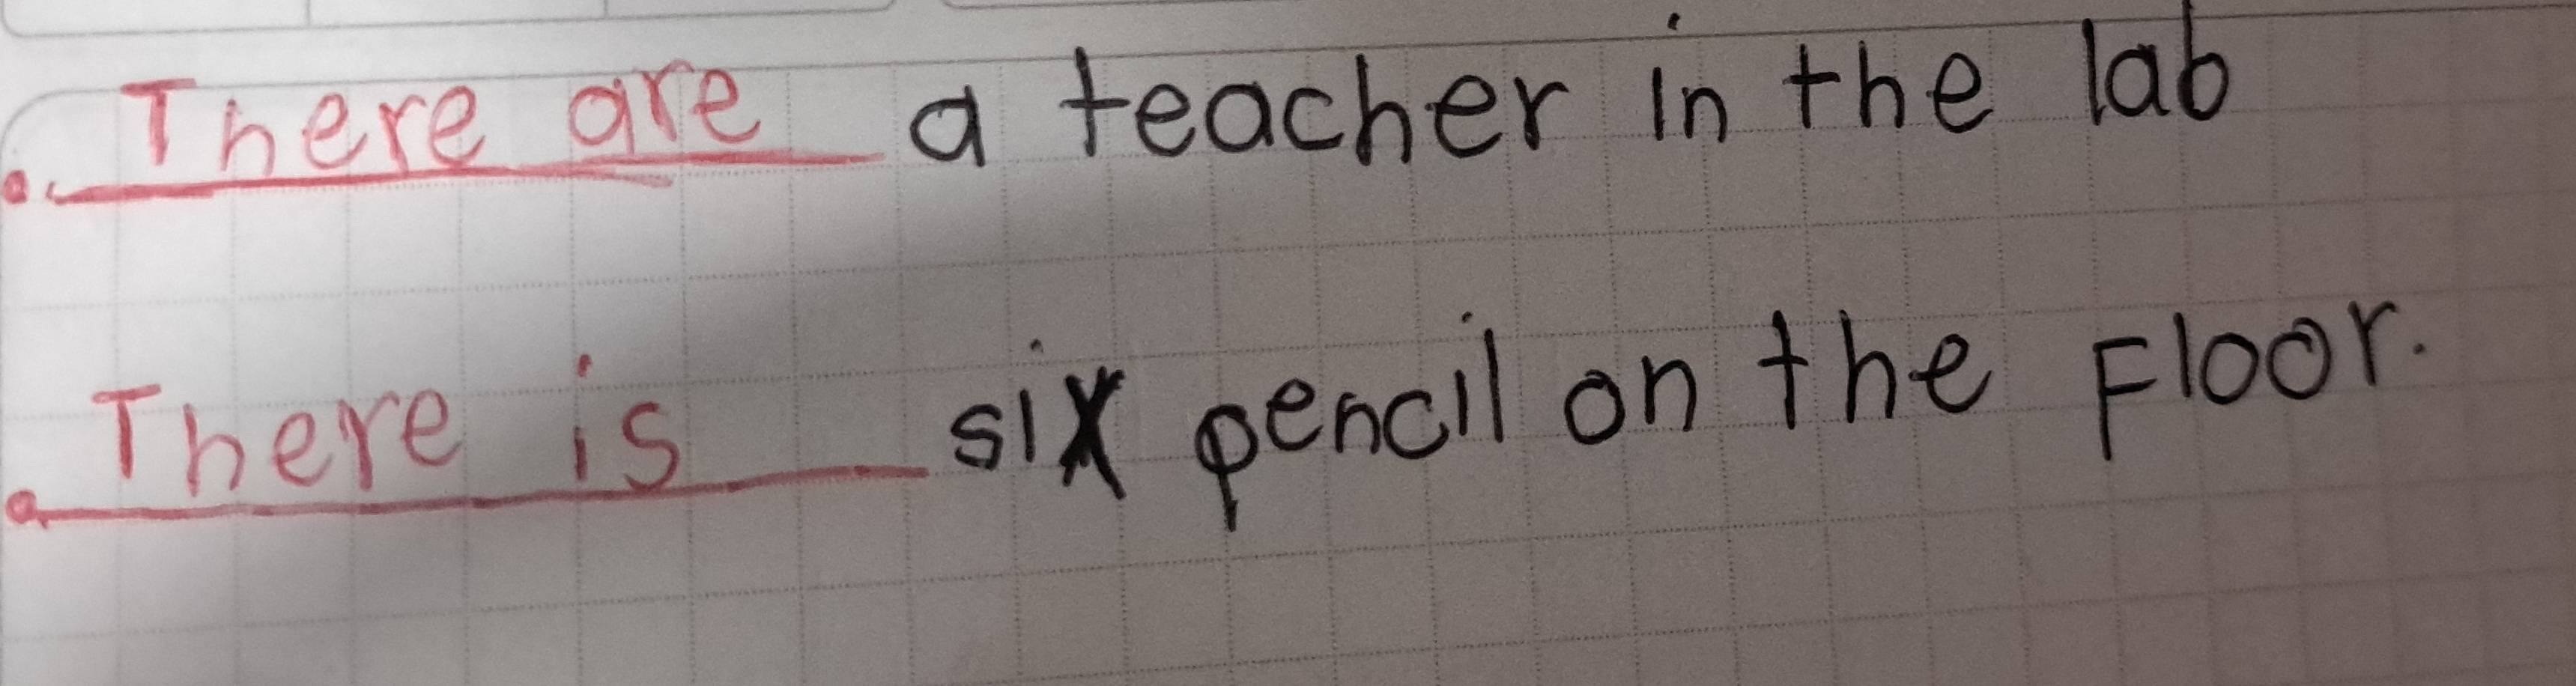 There are a teacher in the lab
There is six pencil on the Floor.